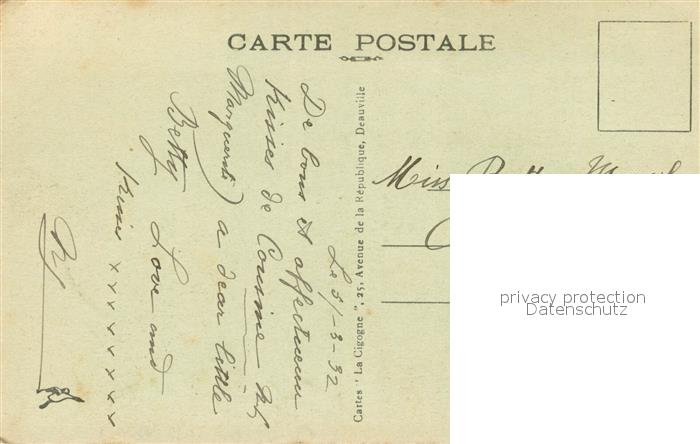 CARTE POSTALE
Le 31-3-32
De bons et affectueux
kisses de Cousine
Marguerite) a dear little
Betty Love and
kisses x x x x x x x x
Cartes "La Cigogne", 25, Avenue de la République, Deauville
Miss
privacy protection
Datenschutz